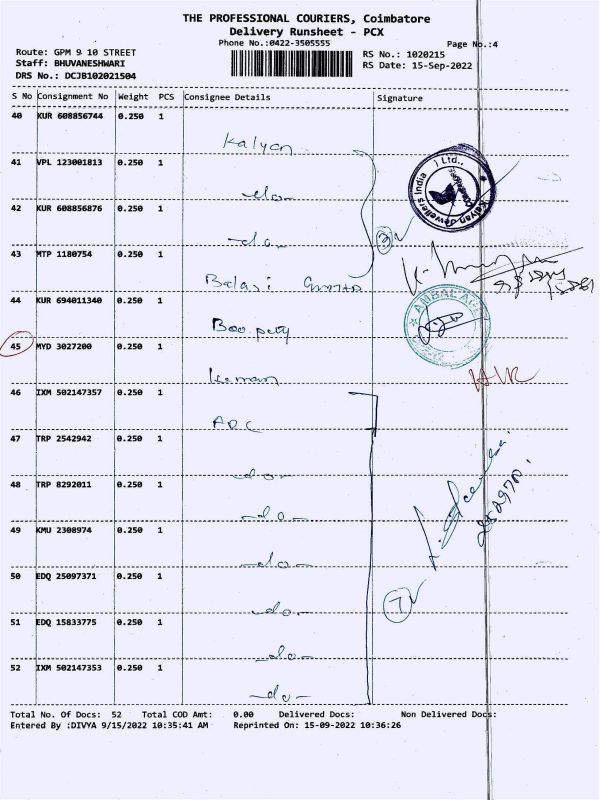 THE PROFESSIONAL COURIERS, Coimbatore
Delivery Runsheet - PCX
Phone No.:0422-3505555
Page No.:4
Route: GPM 9 10 STREET
RS No.: 1020215
Staff: BHUVANESHWARI
RS Date: 15-Sep-2022
DRS No.: DCJB102021504
S No Consignment No Weight PCS Consignee Details Signature
40 KUR 608856744 0.250 1
Kalyan
41 VPL 123001813 0.250 1
-do-
42 KUR 608856876 0.250 1
-do-
3
43 MTP 1180754 0.250 1
Balaji
44 KUR 694011340 0.250 1
45 MYD 3027200 0.250 1
46 IXM 502147357 0.250 1
ADC
47 TRP 2542942 0.250 1
-do-
48 TRP 8292011 0.250 1
-do-
49 KMU 2308974 0.250 1
-do-
50 EDQ 25097371 0.250 1
-do-
7
51 EDQ 15833775 0.250 1
-do-
52 IXM 502147353 0.250 1
-do-
Kalyan Jewellers India Ltd.,
AMBAL
Total No. Of Docs: 52 Total COD Amt: 0.00 Delivered Docs: Non Delivered Docs:
Entered By :DIVYA 9/15/2022 10:35:41 AM Reprinted On: 15-09-2022 10:36:26